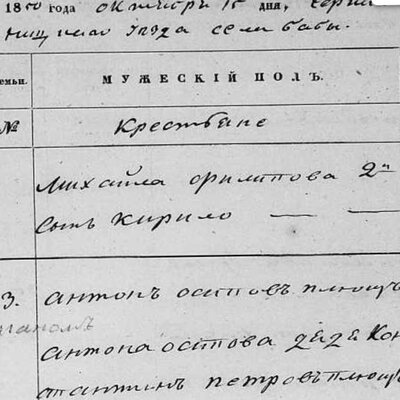 1850 года октября 15 дня,
уезда села бабы.
емьи.
МУЖЕСКІЙ ПОЛЪ.
№
Крестьяне
Михайла Филипова 2й
сынъ Кирило — —
3. антонъ осиповъ
антона осипова дядя Кон
стантинъ петровъ